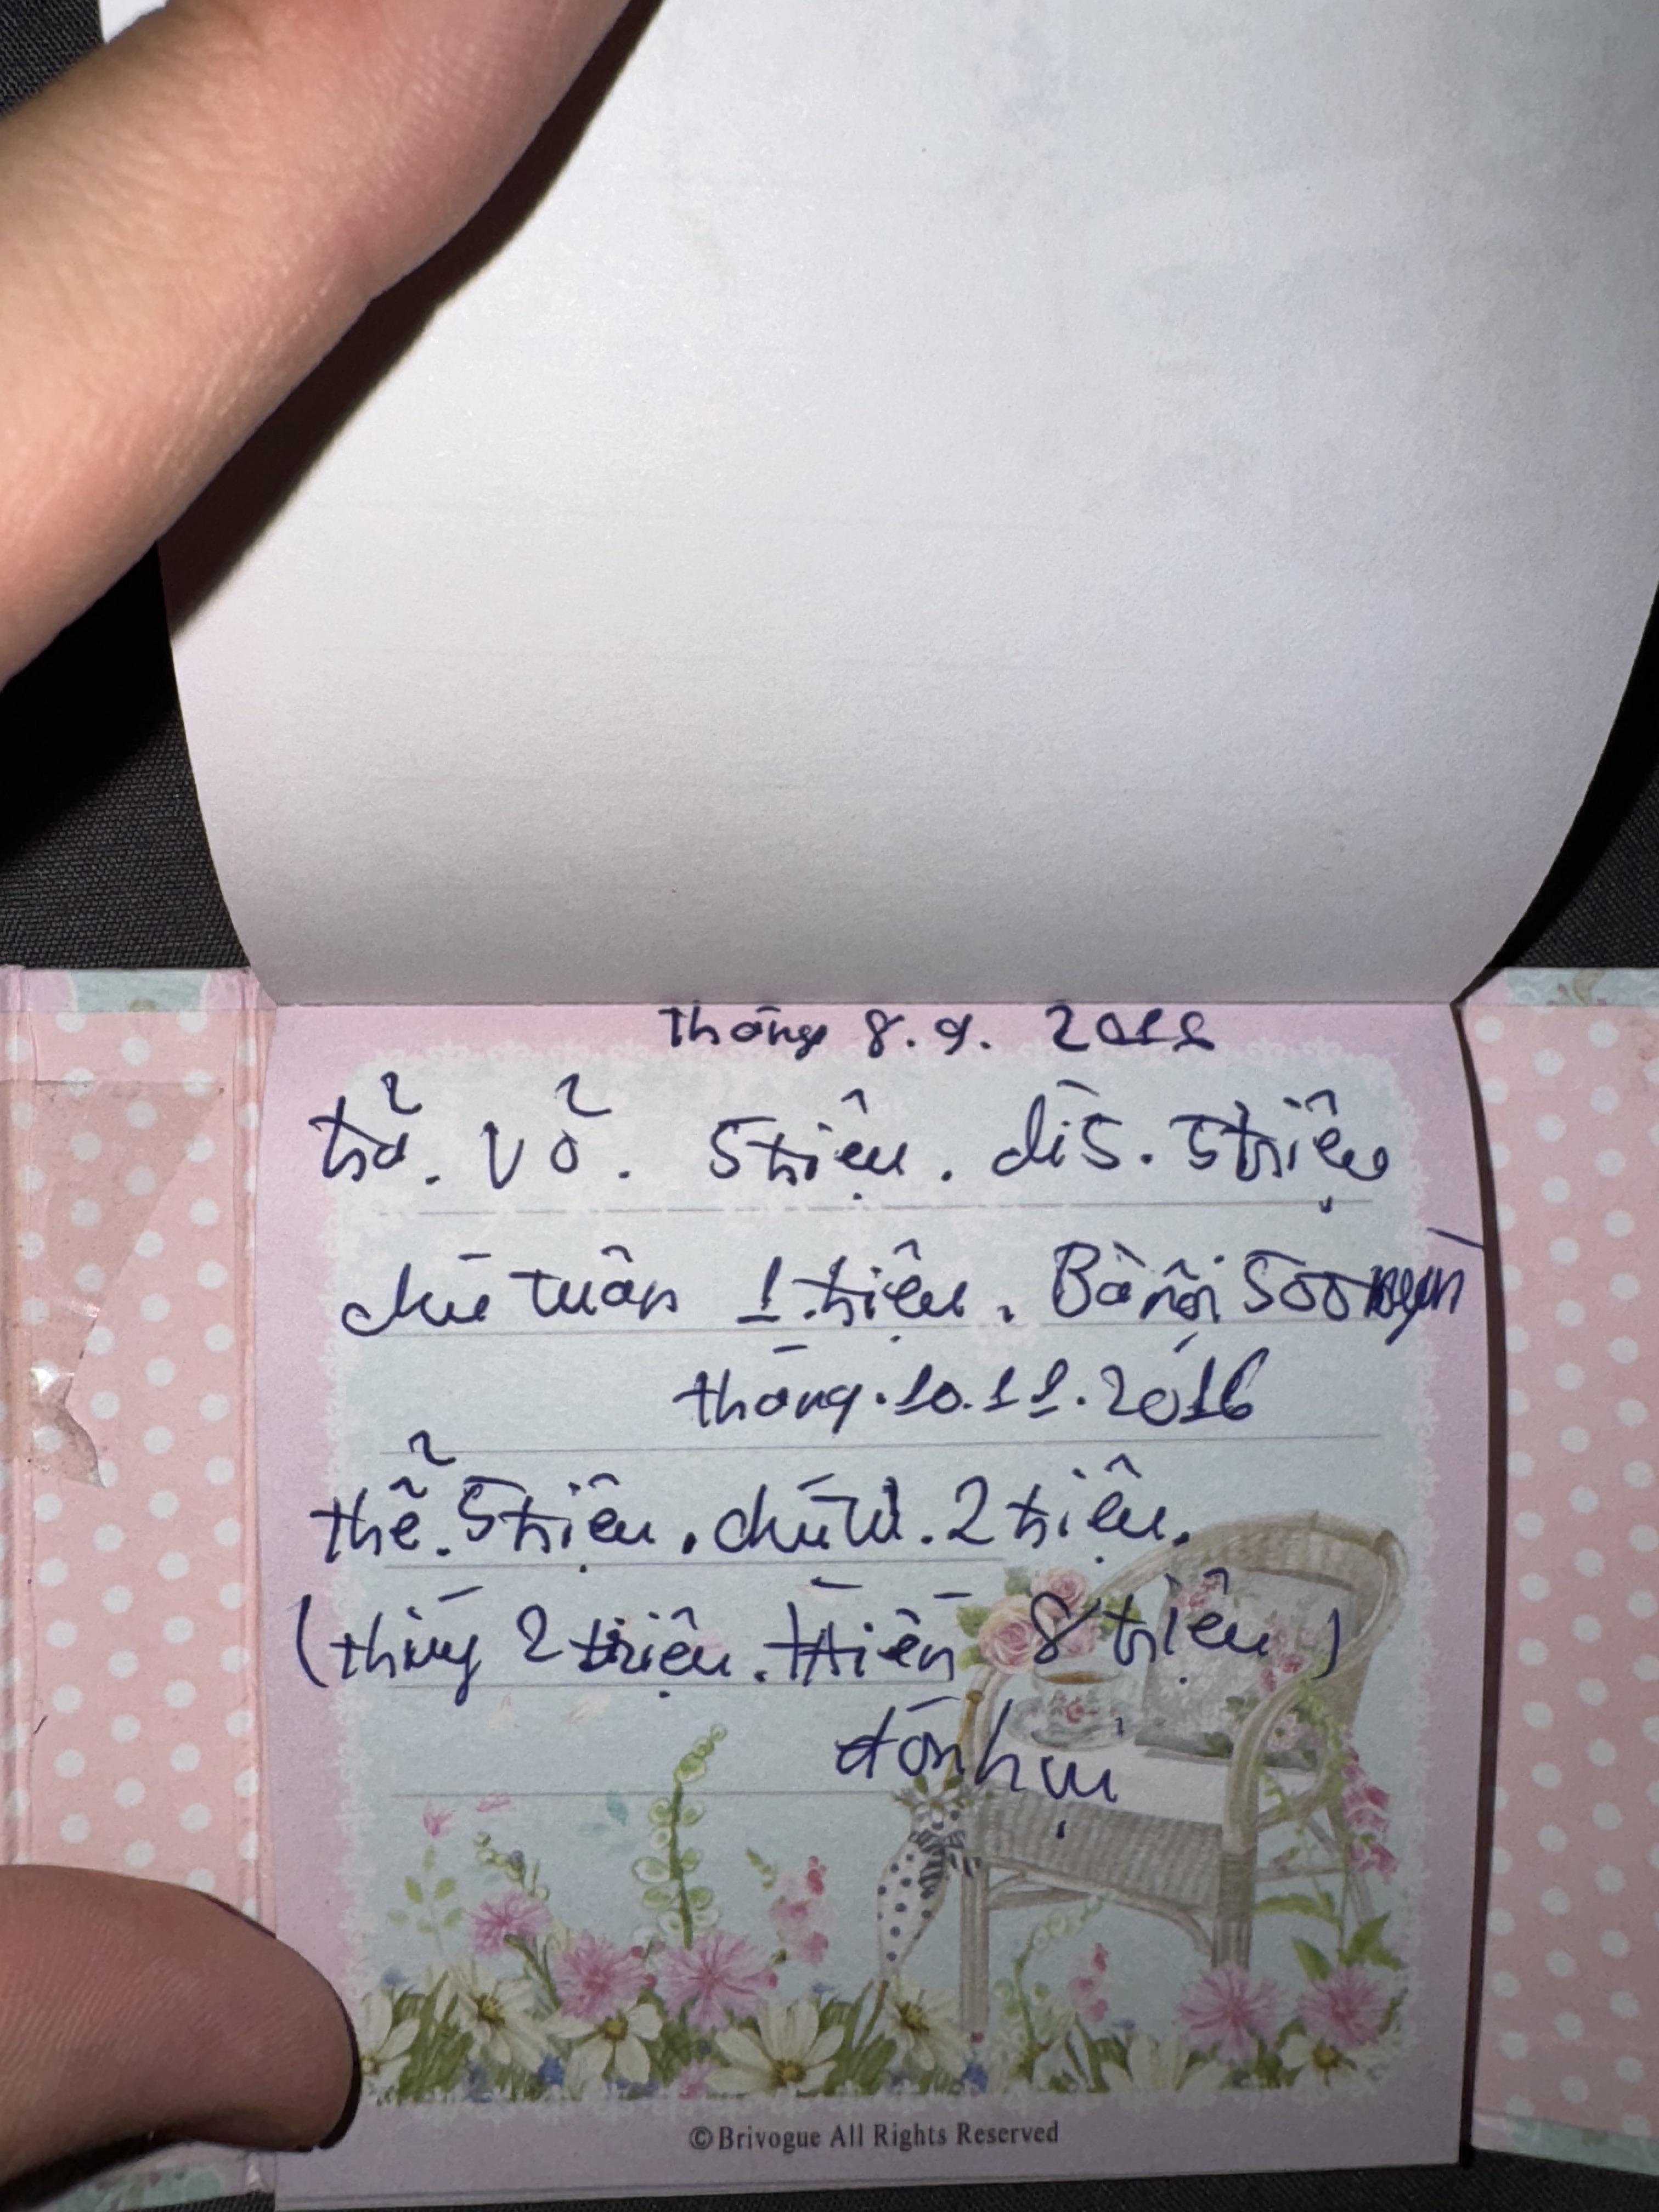 tháng 8.9.
trả. vỏ. 5 triệu. dì 5. 5 triệu
chú Tuấn 1 triệu. Bà nội 500
tháng.10.11.2016
thể. 5 triệu. chú Tú. 2 triệu.
( thúy 2 triệu. Hiến 8 triệu )
đón hụi
©Brivogue All Rights Reserved